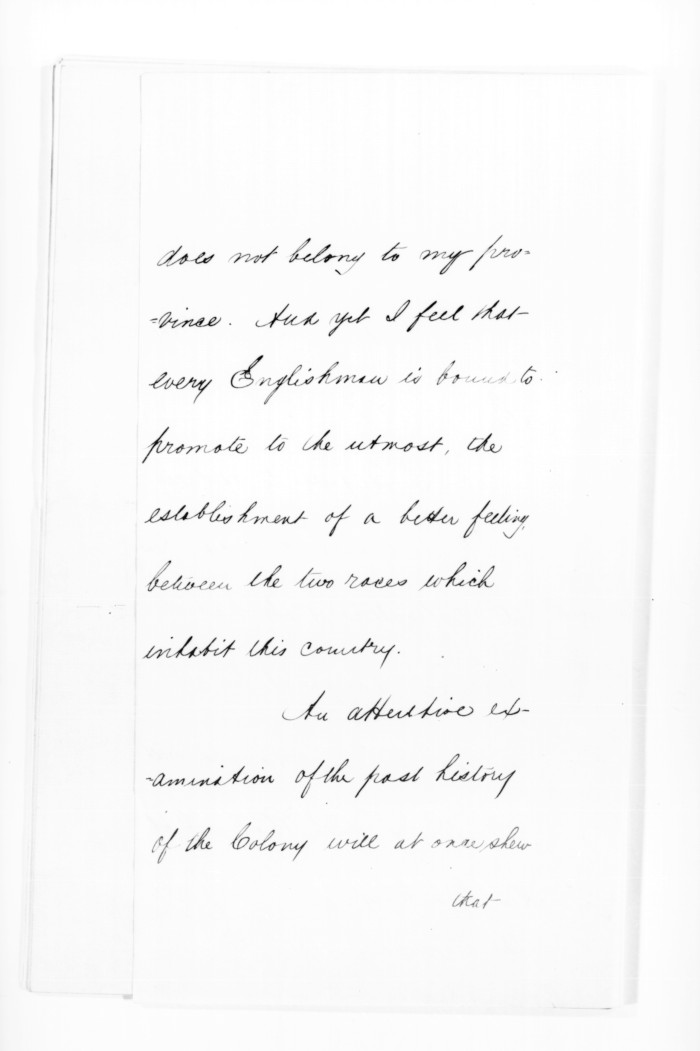 does not belong to my pro=
=vince. And yet I feel that
every Englishman is bound to
promote to the utmost, the
establishment of a better feeling,
between the two races which
inhabit this country.
An attentive ex-
-amination of the past history
of the Colony will at once shew
that